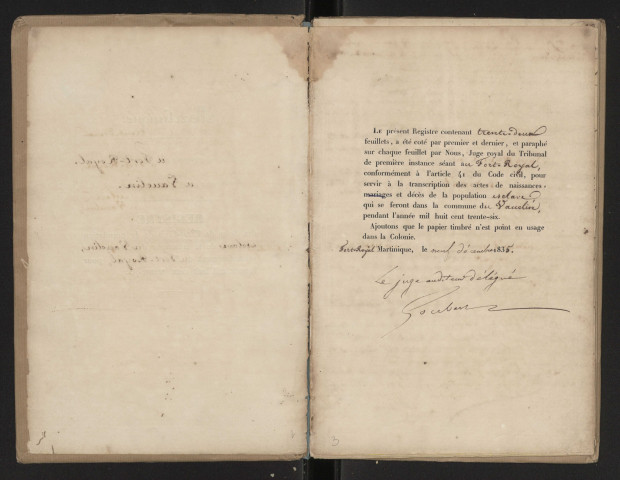 LE présent Registre contenant trente-deux
feuillets, a été coté par premier et dernier, et paraphé
sur chaque feuillet par Nous, Juge royal du Tribunal
de première instance séant au Fort-Royal,
conformément à l'article 41 du Code civil, pour
servir à la transcription des actes de naissances,
mariages et décès de la population esclave
qui se feront dans la commune du Vauclin,
pendant l'année mil huit cent trente-six.
Ajoutons que le papier timbré n'est point en usage
dans la Colonie.
Fort-Royal Martinique, le neuf décembre 1835.
Le juge auditeur délégué
3